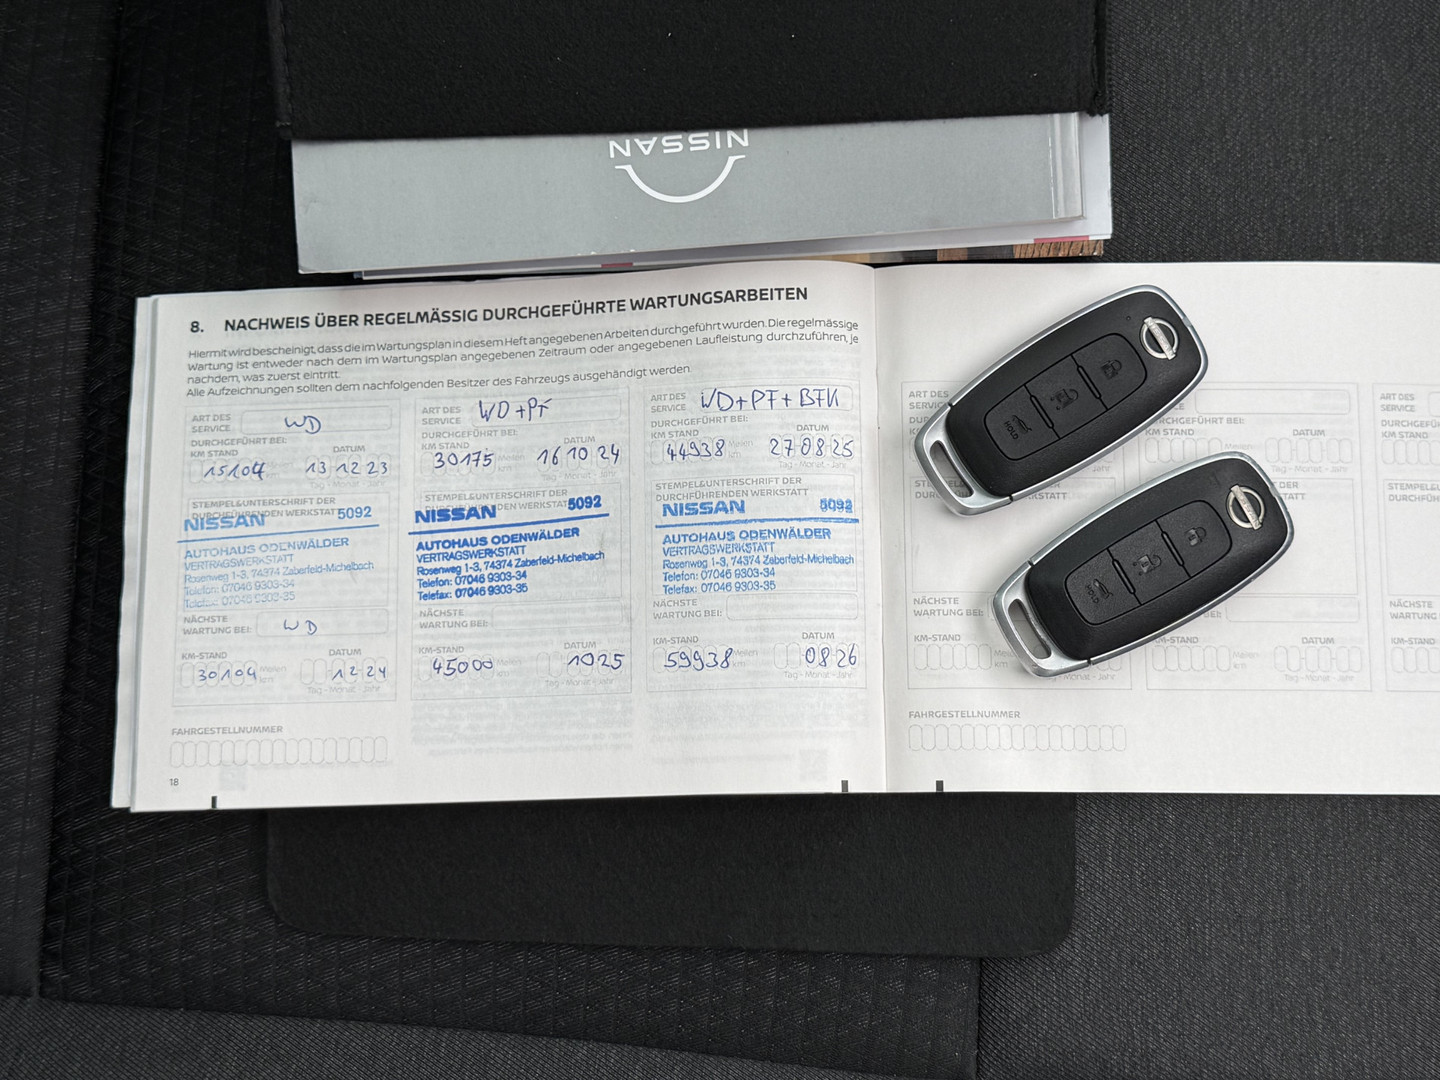 NISSAN
8. NACHWEIS ÜBER REGELMÄSSIG DURCHGEFÜHRTE WARTUNGSARBEITEN
Hiermit wird bescheinigt, dass die im Wartungsplan in diesem Heft angegebenen Arbeiten durchgeführt wurden. Die regelmässige
Wartung ist entweder nach dem im Wartungsplan angegebenen Zeitraum oder angegebenen Laufleistung durchzuführen, je
nachdem, was zuerst eintritt.
Alle Aufzeichnungen sollten dem nachfolgenden Besitzer des Fahrzeugs ausgehändigt werden
ART DES
SERVICE WD
DURCHGEFÜHRT BEI:
KM STAND DATUM
15104 Meilen km 13 12 23
Tag - Monat - Jahr
STEMPEL&UNTERSCHRIFT DER
DURCHFÜHRENDEN WERKSTATT
NISSAN 5092
AUTOHAUS ODENWÄLDER
VERTRAGSWERKSTATT
Rosenweg 1-3, 74374 Zaberfeld-Michelbach
Telefon: 07046 9303-34
Telefax: 07046 9303-35
NÄCHSTE
WARTUNG BEI: WD
KM-STAND DATUM
30104 Meilen km 12 24
Tag - Monat - Jahr
FAHRGESTELLNUMMER
18
ART DES
SERVICE WD+PF
DURCHGEFÜHRT BEI:
KM STAND DATUM
30175 Meilen km 16 10 24
Tag - Monat - Jahr
STEMPEL&UNTERSCHRIFT DER
DURCHFÜHRENDEN WERKSTATT
NISSAN 5092
AUTOHAUS ODENWÄLDER
VERTRAGSWERKSTATT
Rosenweg 1-3, 74374 Zaberfeld-Michelbach
Telefon: 07046 9303-34
Telefax: 07046 9303-35
NÄCHSTE
WARTUNG BEI:
KM-STAND DATUM
45000 Meilen km 10 25
Tag - Monat - Jahr
ART DES
SERVICE WD+PF+BFK
DURCHGEFÜHRT BEI:
KM STAND DATUM
44938 Meilen km 27 08 25
Tag - Monat - Jahr
STEMPEL&UNTERSCHRIFT DER
DURCHFÜHRENDEN WERKSTATT
NISSAN 5092
AUTOHAUS ODENWÄLDER
VERTRAGSWERKSTATT
Rosenweg 1-3, 74374 Zaberfeld-Michelbach
Telefon: 07046 9303-34
Telefax: 07046 9303-35
NÄCHSTE
WARTUNG BEI:
KM-STAND DATUM
59938 Meilen km 08 26
Tag - Monat - Jahr
ART DES
NÄCHSTE
WARTUNG BEI:
KM-STAND
Meilen
km
FAHRGESTELLNUMMER
KM STAND DATUM
DATUM
Tag - Monat - Jahr
ART DES
SERVICE
KM STAND
NÄCHSTE
WARTUNG
KM-STAND
HOLD
HOLD